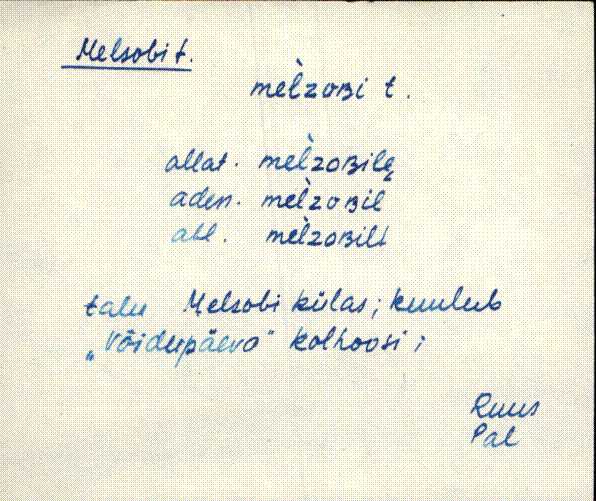 Melsobi t.
mèlzoʙi t.
allat. mèlzoʙilę
aden. mèlzoʙil
abl. mèlzoʙilt
talu Melsobi külas; kuulub
„Võidupäeva" kolhoosi;
Ruus
Pal